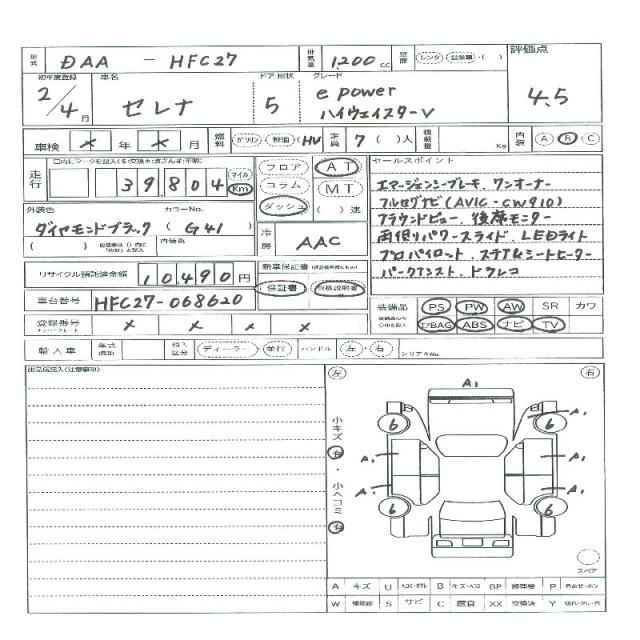 型式 DAA - HFC27 排気量 1200 cc 車歴 レンタ・営業車・( ) 評価点
初年度登録 車名 ドア 形状 グレード
2/4月 セレナ 5 e power ハイウェイスターV 4.5
車検 × 年 × 月 燃料 ガソリン・軽油・(HV 定員 7 ( )人 積載量 Kg 内装 A B C
走行 39,804 マイル Km フロア コラム ダッシュ AT MT ( )速
セールスポイント
エマージェンシーブレーキ、ワンオーナー
フルセグナビ(AVIC-CW910)
アラウンドビュー、後席モニター
両側パワースライド、LEDライト
プロパイロット、ステア&シートヒーター
パークアシスト、ドラレコ
外装色 カラーNo.
ダイヤモンドブラック ( G41 )
( ) 内装色 ( )
冷房 AAC
リサイクル預託済金額 10,490円 新車保証書 保証書 取扱説明書
車台番号 HFC27-068620
装備品 PS PW AW SR カワ
エアBAG ABS ナビ TV
登録番号 × × × ×
輸入車 年式 輸入区分 ディーラー・並行 ハンドル 左・右 シリアルNo.
出品店記入(注意事項)
左 右
A1
小キズ 有・小ヘコミ 有
6 6 A1
A1 A1
A1 A1
6 6
スペア
A キズ U B キズ・ヘコミ BP 修理等 P
W 補修跡 S サビ C 腐食 XX 交換済 Y